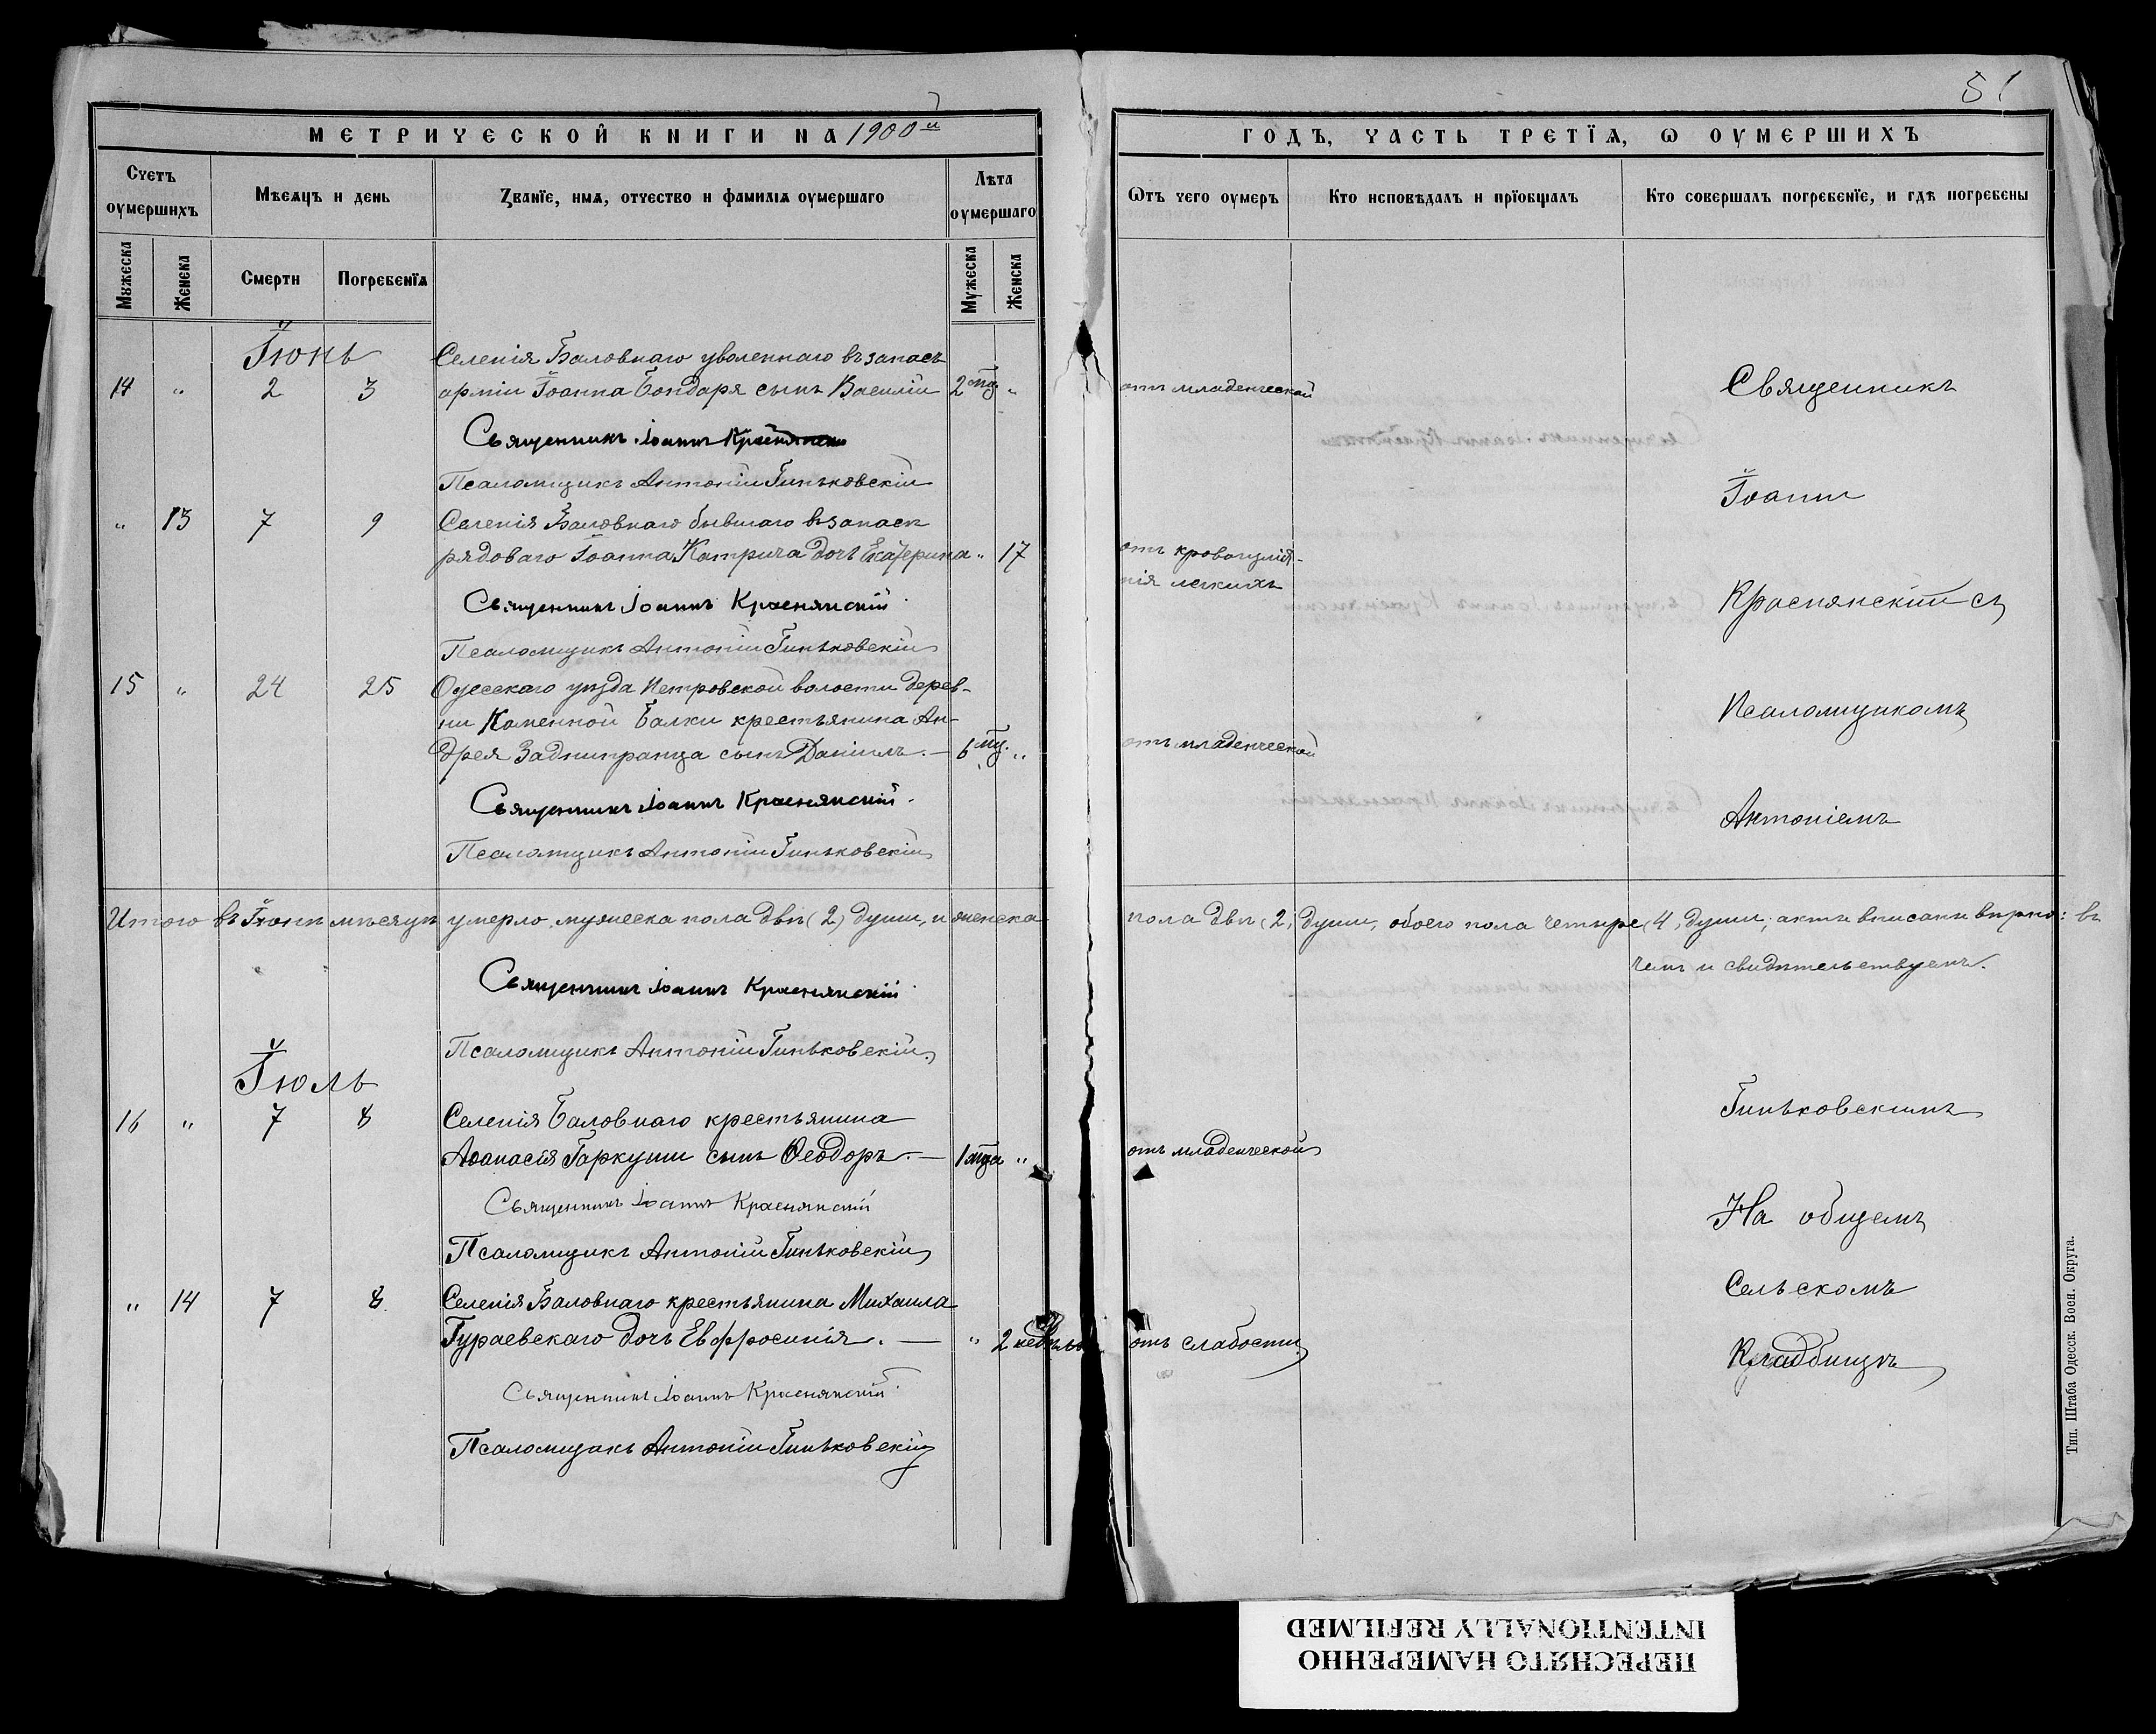 51
МЕТРИЧЕСКОЙ КНИГИ НА 1900й
ГОДЪ, ЧАСТЬ ТРЕТІѦ, Ѡ ОУМЕРШИХЪ
Счетъ оумершихъ
Мѣсѧцъ и день
Званіе, имѧ, отчество и фамиліѧ оумершаго
Лѣта оумершаго
Ѿтъ чего оумеръ
Кто исповѣдалъ и пріобщалъ
Кто совершалъ погребеніе, и гдѣ погребены
Мужеска
Женска
Смерти
Погребеніѧ
Мужеска
Женска
Іюнь
Селенія Баловнаго уволеннаго въ запасъ
14 " 2 3 арміи Іоанна Бондаря сынъ Василій 2 мц " отъ младенческой Священникъ
Священникъ Іоаннъ Краснянскій
Псаломщикъ Антоній Гиньковскій Іоаннъ
" 13 7 9 Селенія Баловнаго бывшаго въ запасѣ
рядоваго Іоанна Катрича дочь Екатерина " 17 отъ кровоизлія-
нія легкихъ
Священникъ Іоаннъ Краснянскій Краснянскій съ
Псаломщикъ Антоній Гиньковскій
15 " 24 25 Одесскаго уѣзда Петровской волости дерев-
ни Каменной Балки крестьянина Ан- Псаломщикомъ
дрея Заднипранца сынъ Даніилъ. — 6 мц. " отъ младенческой
Священникъ Іоаннъ Краснянскій Антоніемъ
Псаломщикъ Антоній Гиньковскій
Итого въ Іюнѣ мѣсяцѣ умерло мужеска пола двѣ (2) души, и женска пола двѣ (2) души, обоего пола четыре (4) души; акты вписаны вѣрно: въ
чемъ и свидѣтельствуемъ.
Священникъ Іоаннъ Краснянскій
Псаломщикъ Антоній Гиньковскій
Іюль
16 " 7 8 Селенія Баловнаго крестьянина Гиньковскимъ
Аѳанасія Гаркуши сынъ Ѳеодоръ. — 1 мца " отъ младенческой
Священникъ Іоаннъ Краснянскій На общемъ
Псаломщикъ Антоній Гиньковскій
" 14 7 8 Селенія Баловнаго крестьянина Михаила Сельскомъ
Гураевскаго дочь Евфросинія. — " 2 недѣль отъ слабости Кладбищѣ
Священникъ Іоаннъ Краснянскій
Псаломщикъ Антоній Гиньковскій
Тип. Штаба Одесск. Воен. Округа.
ПЕРЕСНЯТО НАМЕРЕННО
INTENTIONALLY REFILMED